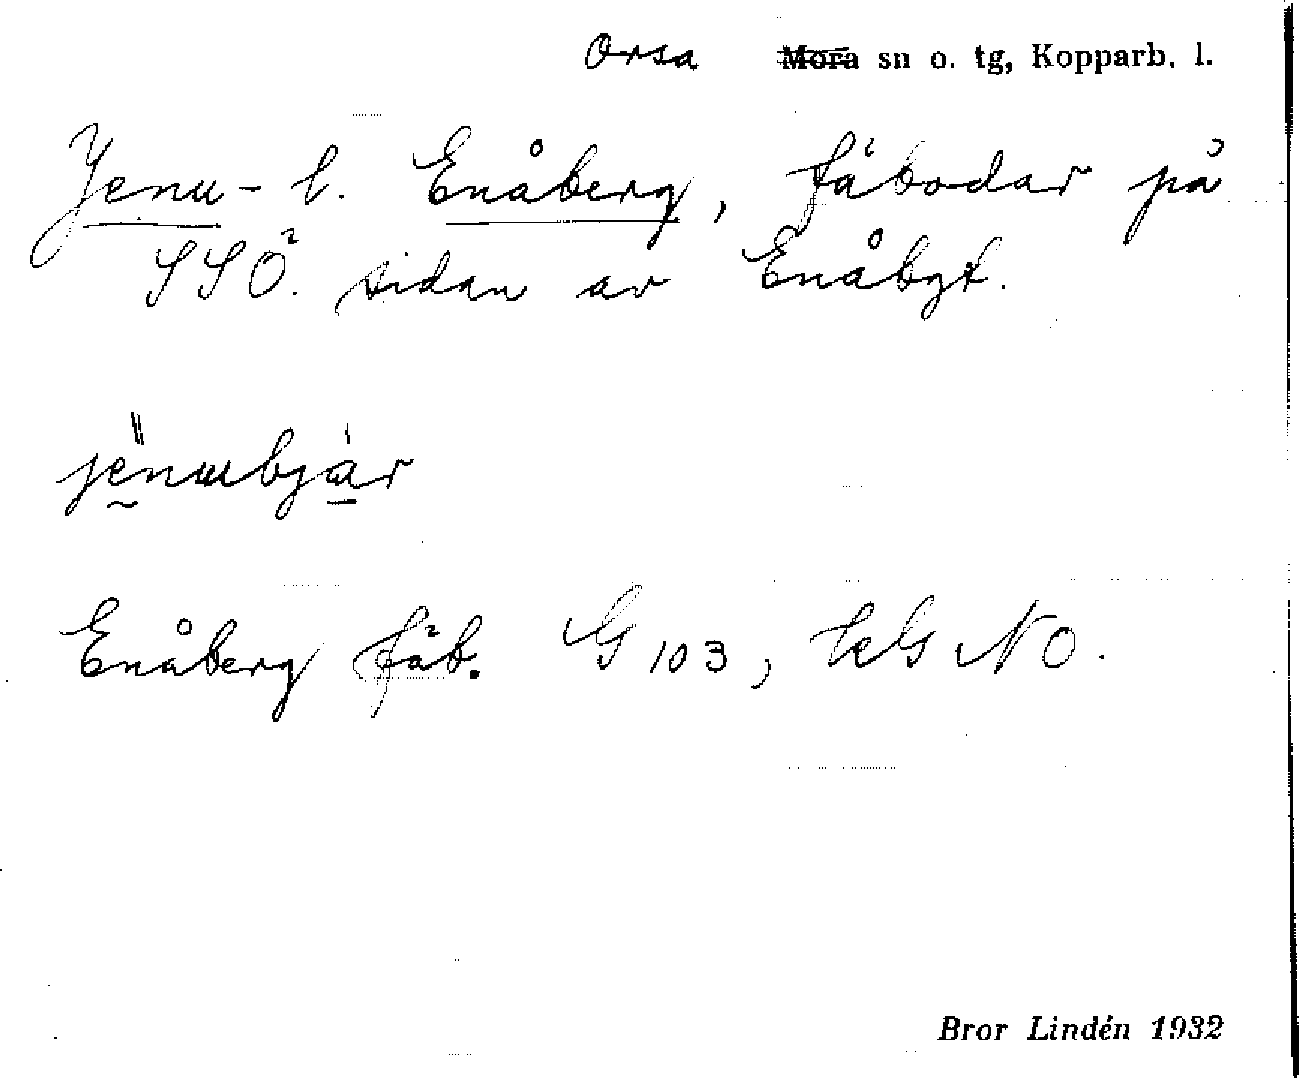 Orsa Mora sn o. tg, Kopparb. l.
Jenu- l. Enåberg, fäbodar på
SSÖ. sidan av Enåbgt.
jenubjär
Enåberg fäb. G 103, NO.
Bror Lindén 1932